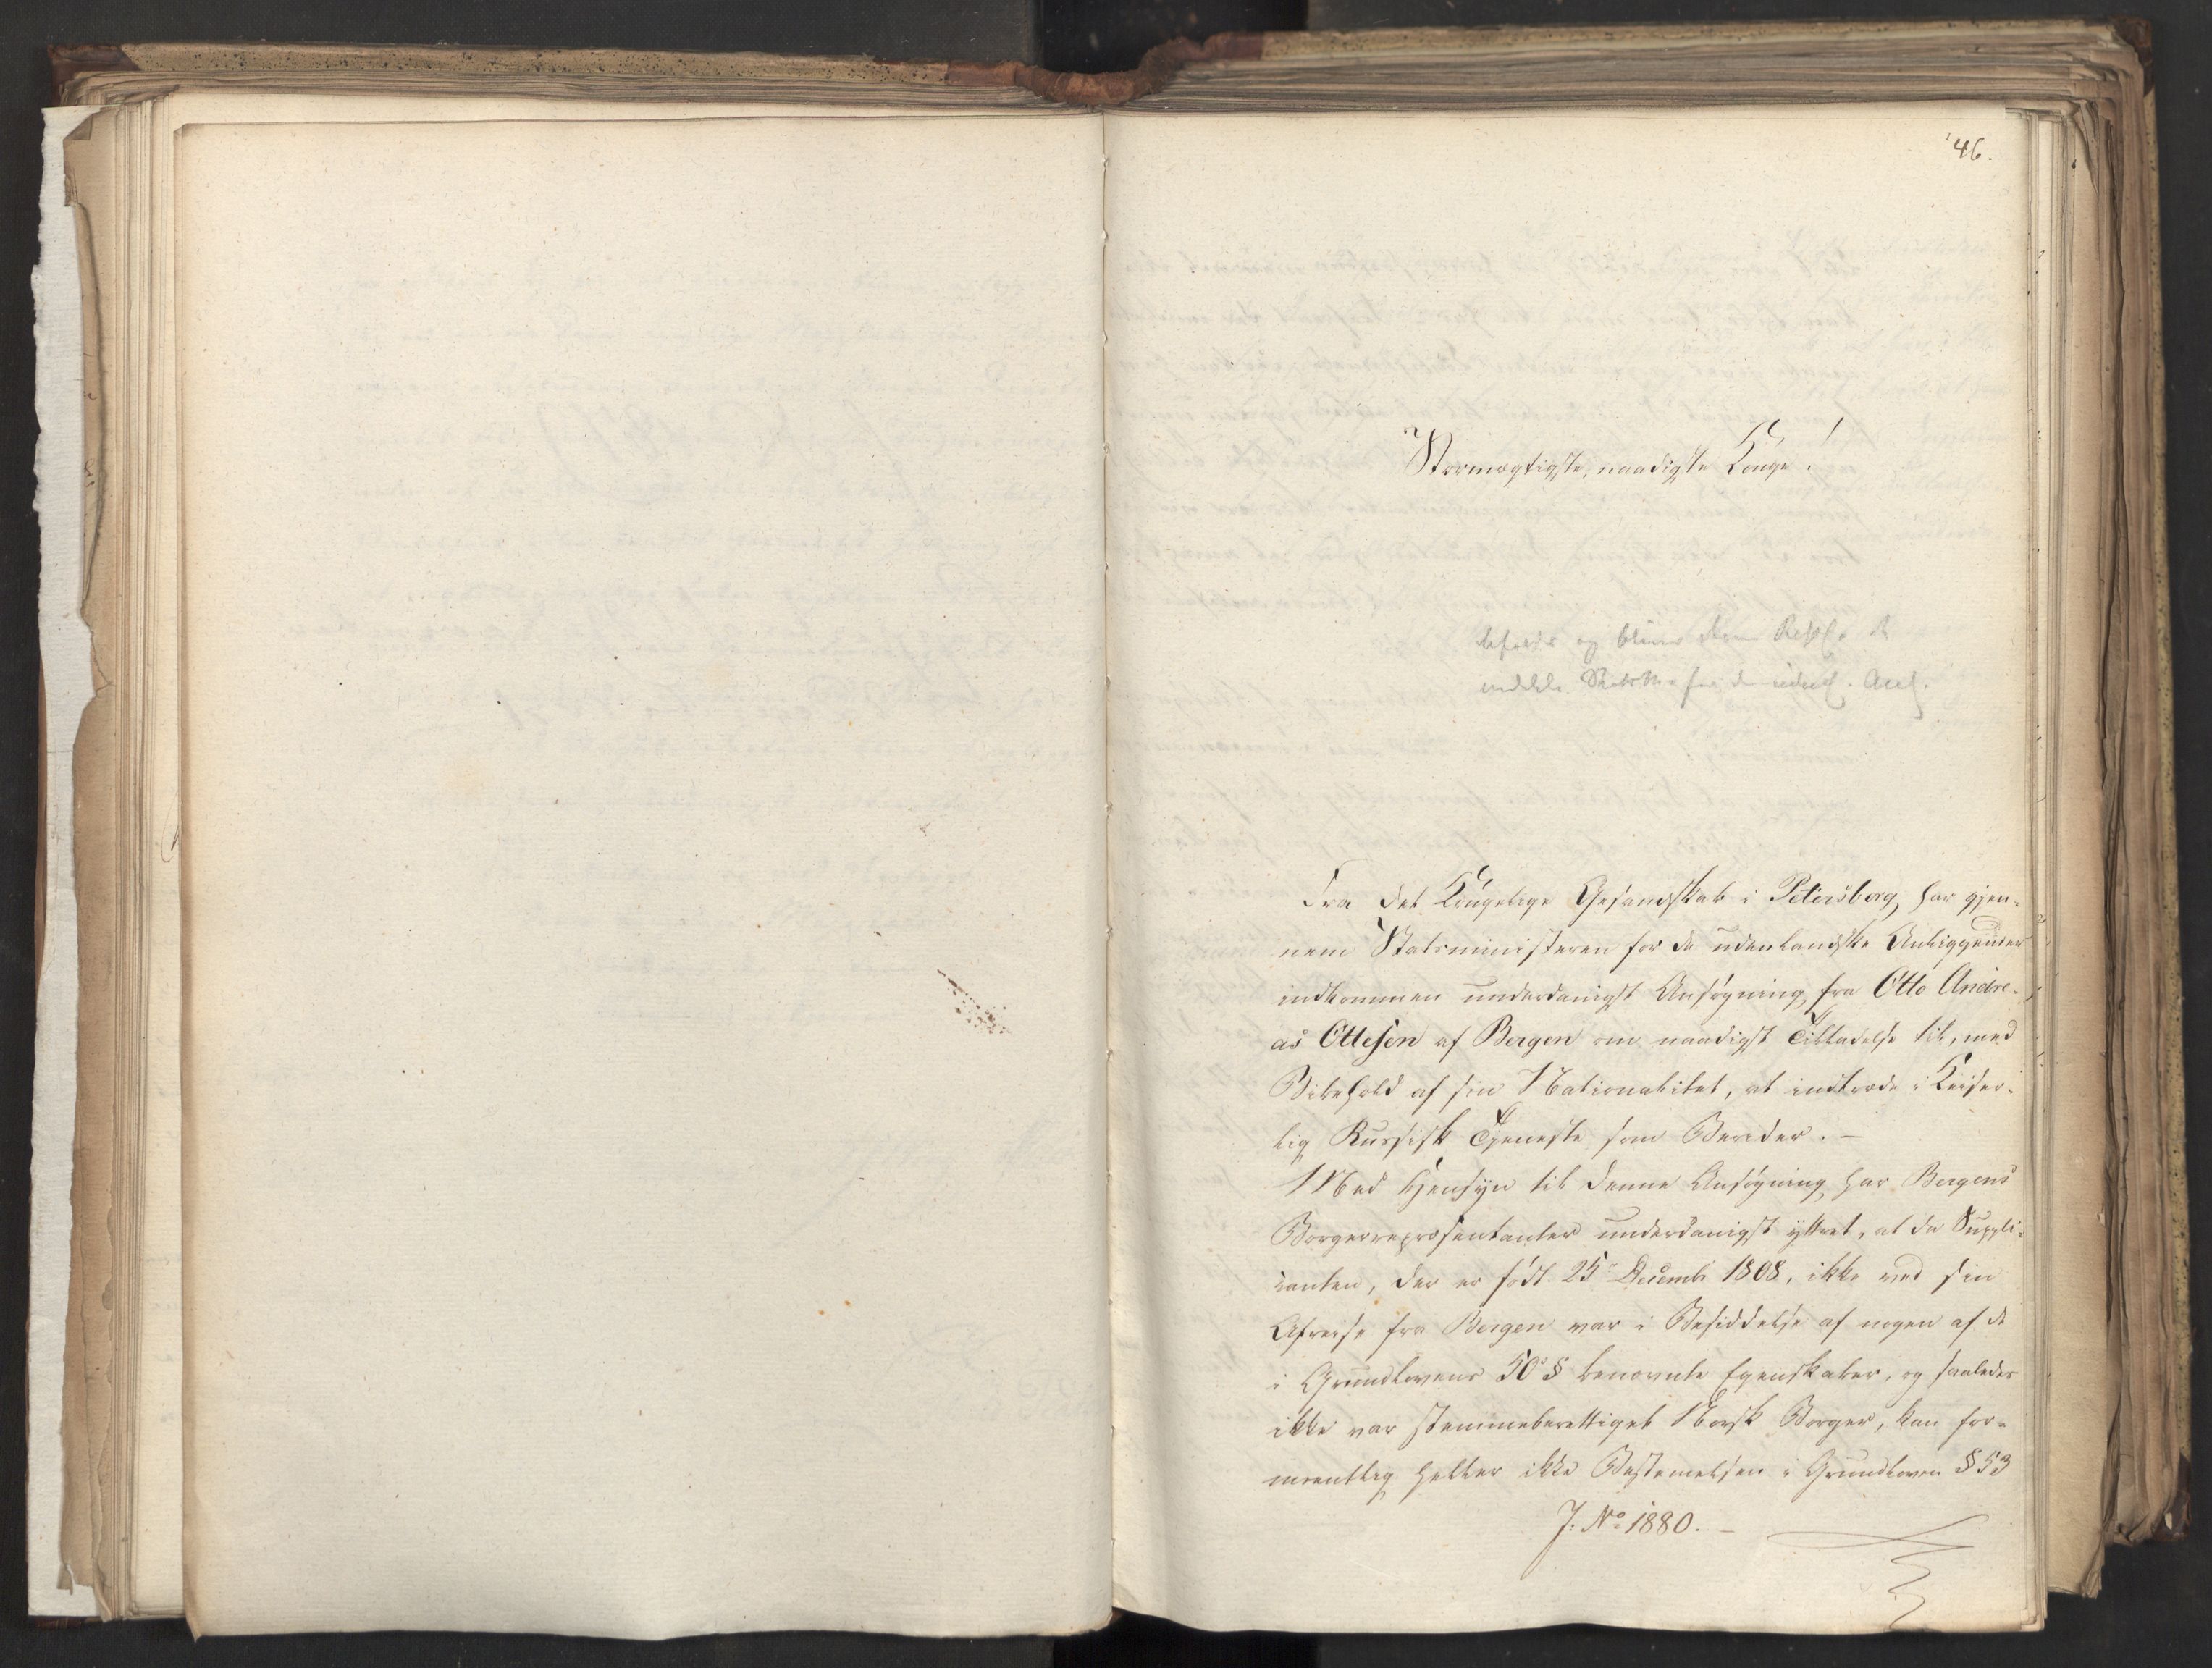 46.
Stormægtigste, naadigste Konge!
Fra det Kongelige Gesandskab i Petersborg har gjen-
nem Statsministeren for de udenlandske Anliggender
indkommen underdanigst Ansøgning fra Otto Andre-
as Ottesen af Bergen om naadigst Tilladelse til, med
Bibehold af sin Nationalitet, at indtræde i Keiser-
lig Russisk Tjeneste som Berider. -
Med Hensyn til denne Ansøgning har Bergens
Borgerrepræsentanter underdanigst yttret, at da Suppli-
canten, der er født 25 Decembr 1808, ikke ved sin
Afreise fra Bergen var i Besiddelse af nogen af de
i Grundlovens 50 § benævnte Egenskaber, og saaledes
ikke var stemmeberettiget Norsk Borger, kan for-
mentlig heller ikke Bestemelsen i Grundloven § 53
J: No 1880. -